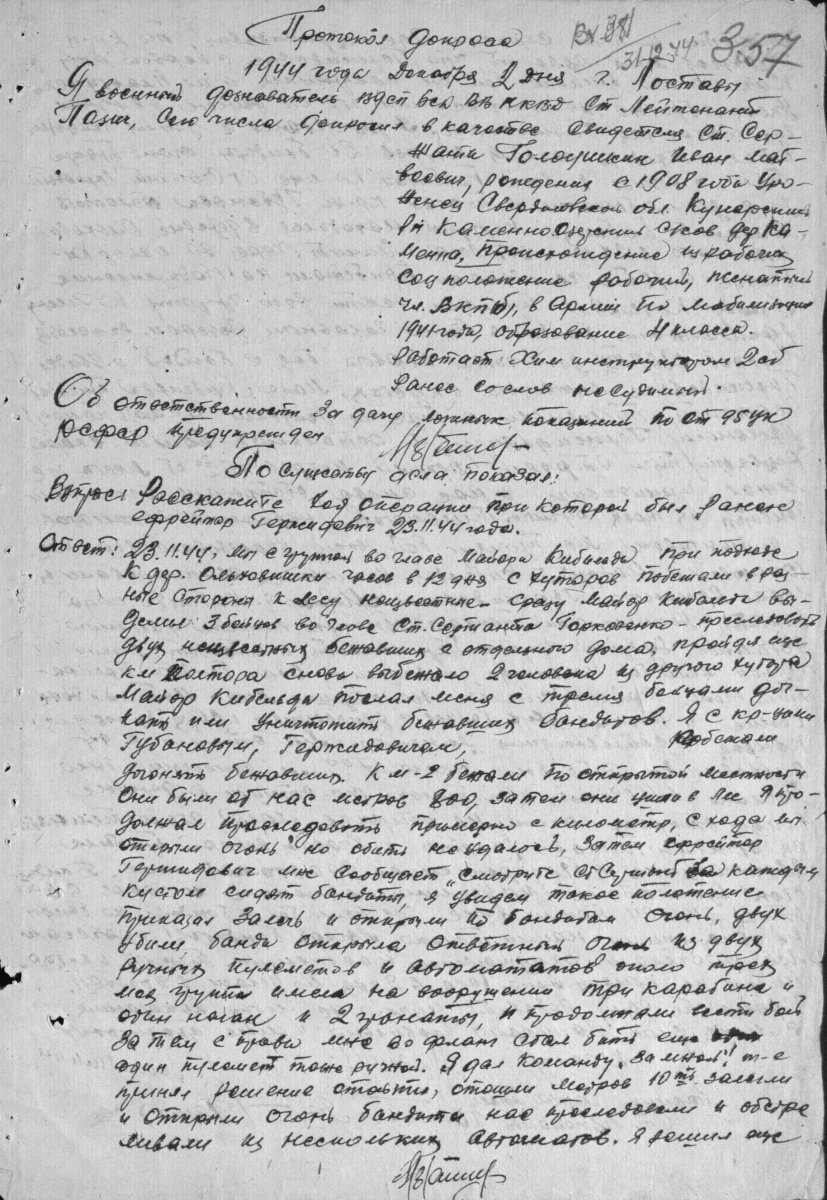 Протокол допроса
Вх 981
31/12.44
357
1944 года Декабря 2 дня г. Поставы
Я военный дознаватель ВВ НКВД Ст Лейтенант
сего числа допросил в качестве свидетеля Ст. Сер-
жанта Голоушкин Иван Мат-
веевич, рождения с 1908 года Уро-
женец Свердловской обл.
рн Каменно Озерский с/сов дер Ка-
менка, происхождение из рабочих
соц положение рабочий, женатый
чл. ВКП(б), в Армии по мобилизации
1941 года, образование 4 класса.
работает Хим инструктором 2 сб
Ранее со слов несудимый.
Об ответственности за дачу ложных показаний по ст 95 УК
РСФСР предупрежден
По существу дела показал:
Вопрос: Расскажите ход операции при которой был ранен
ефрейтор Гержидович 23.11.44 года.
Ответ: 23.11.44, мы с группой во главе Майора Кибельда при подходе
к дер. Ольховишки часов в 12 дня с хуторов побежали в раз-
ные стороны к лесу неизвестные сразу Майор Кибельда вы-
делил 3 бойцов во главе Ст. Сержанта Горковенко - преследовать
двух неизвестных бежавших с отдельного дома, пройдя еще
км полтора снова выбежало 2 человека из другого хутора
Майор Кибельда послал меня с тремя бойцами до-
гнать или уничтожить бежавших бандитов. Я с кр-цами
Губановым, Гержидовичам, побежали
догонять бежавших. К м-2 бежали по открытой местности
Они были от нас метров 800, затем они ушли в лес Я про-
должал преследовать примерно с километр, с хода мы
открыли огонь но сбить не удалось, Затем ефрейтор
Гержидович мне сообщает смотрите Ст Сержант за каждым
кустом сидят бандиты, я увидем такое положение
приказал залечь и открыли по бандитам огонь, двух
убили банда открыла ответный огонь из двух
ручных пулеметов и автоматов около трех
моя группа имела на вооружении три карабина и
один наган и 2 гранаты, и продолжали вести бой
Затем с права мне во фланг стал бить еще
один пулемет тоже ручной. Я дал команду "За мной"! т-е
принял решение отойти, отошли метров 10ть залегли
и открыли огонь бандиты нас преследовали и обстре
ливали из нескольких автоматов. Я решил еще